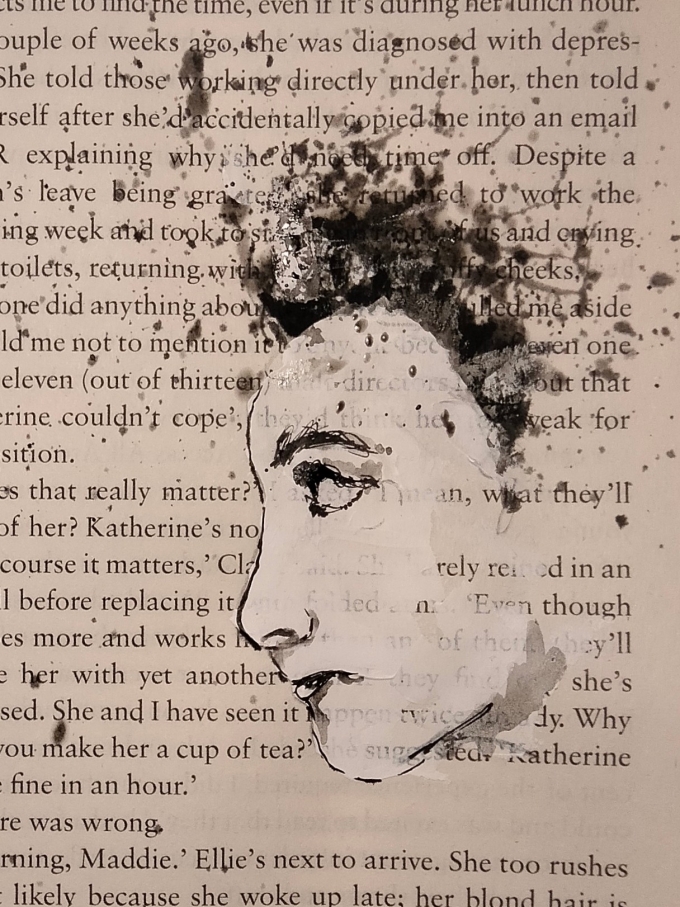 cts me to find the time, even if it's during her lunch hour.
ouple of weeks ago, she was diagnosed with depres-
She told those working directly under her, then told
rself after she'd accidentally copied me into an email
R explaining why she'd need time off. Despite a
's leave being she returned to work the
ing week and took to of us and crying
toilets, returning with cheeks.
one did anything about me aside
ld me not to mention it even one
eleven (out of thirteen) directors out that
erine couldn't cope', they'd think her weak for
sition.
es that really matter?' I mean, what they'll
of her? Katherine's no
course it matters,' rely in an
l before replacing it 'Even though
es more and works of them they'll
e her with yet another they she's
sed. She and I have seen it happen twice Why
you make her a cup of tea?' she suggested. Katherine
e fine in an hour.'
re was wrong.
rning, Maddie.' Ellie's next to arrive. She too rushes
t likely because she woke up late; her blond hair is